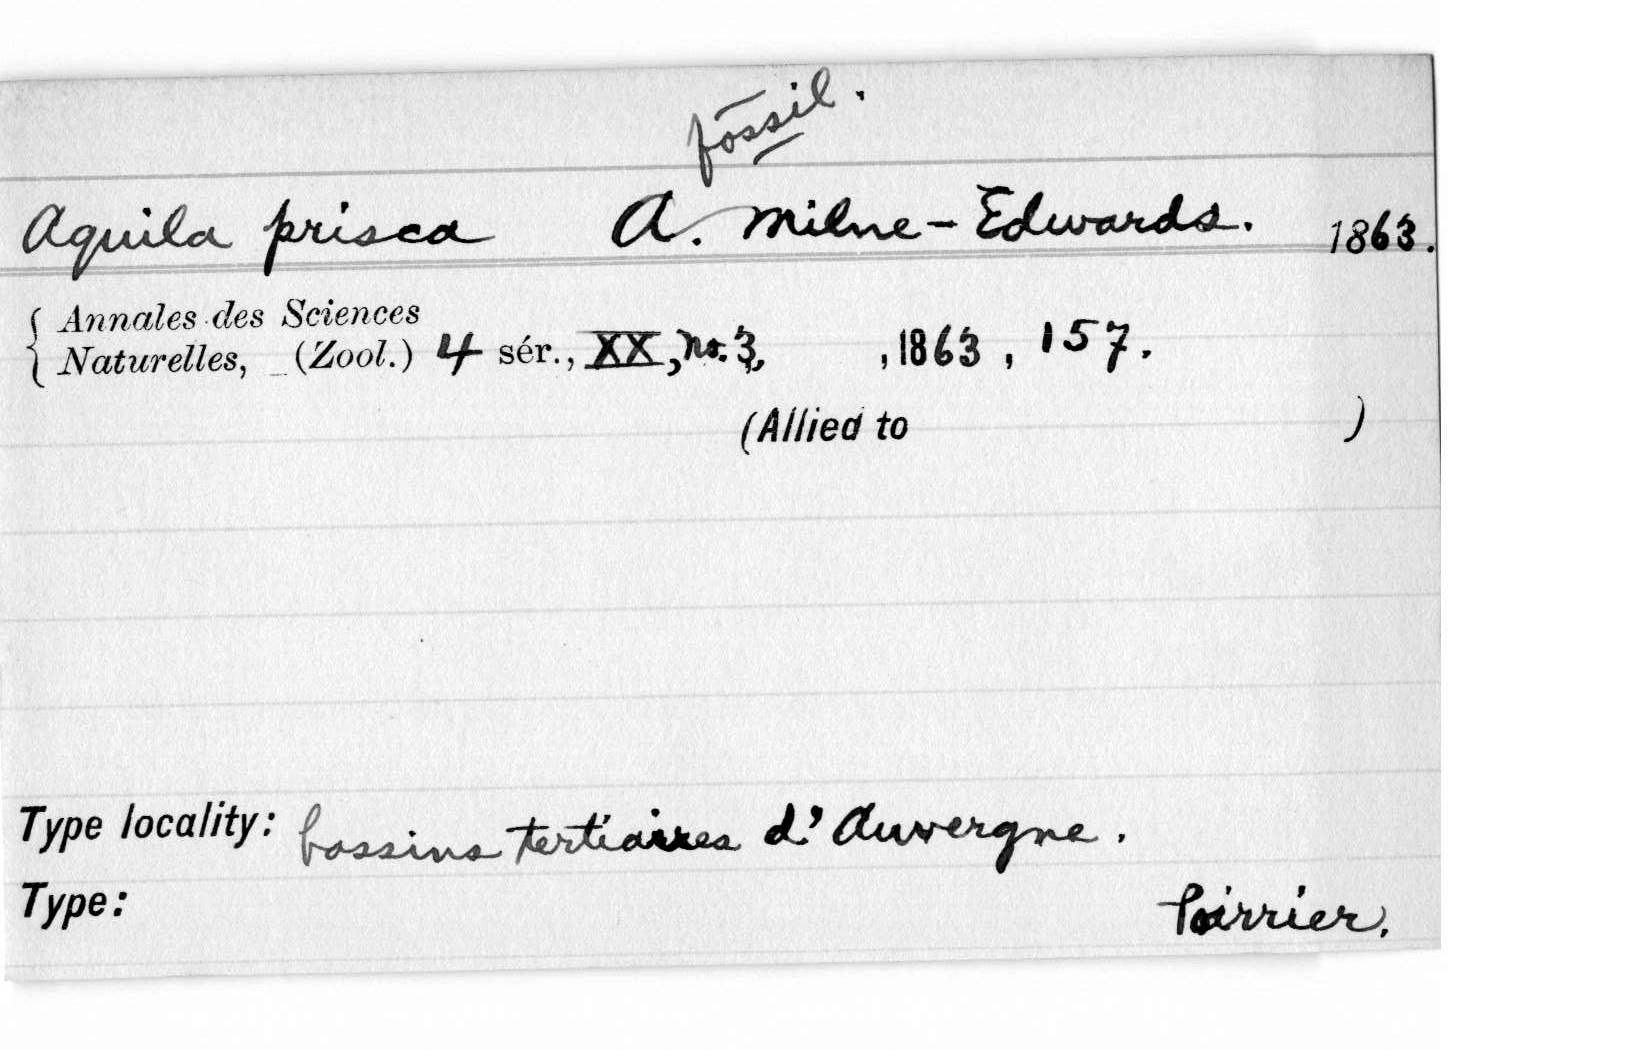 fossil.
Aquila prisca A. Milne-Edwards. 1863.
{ Annales des Sciences
Naturelles, (Zool.) 4 sér., XX, no. 3, , 1863, 157.
(Allied to )
Type locality: bassins tertiaires d'Auvergne.
Type: Poirrier.